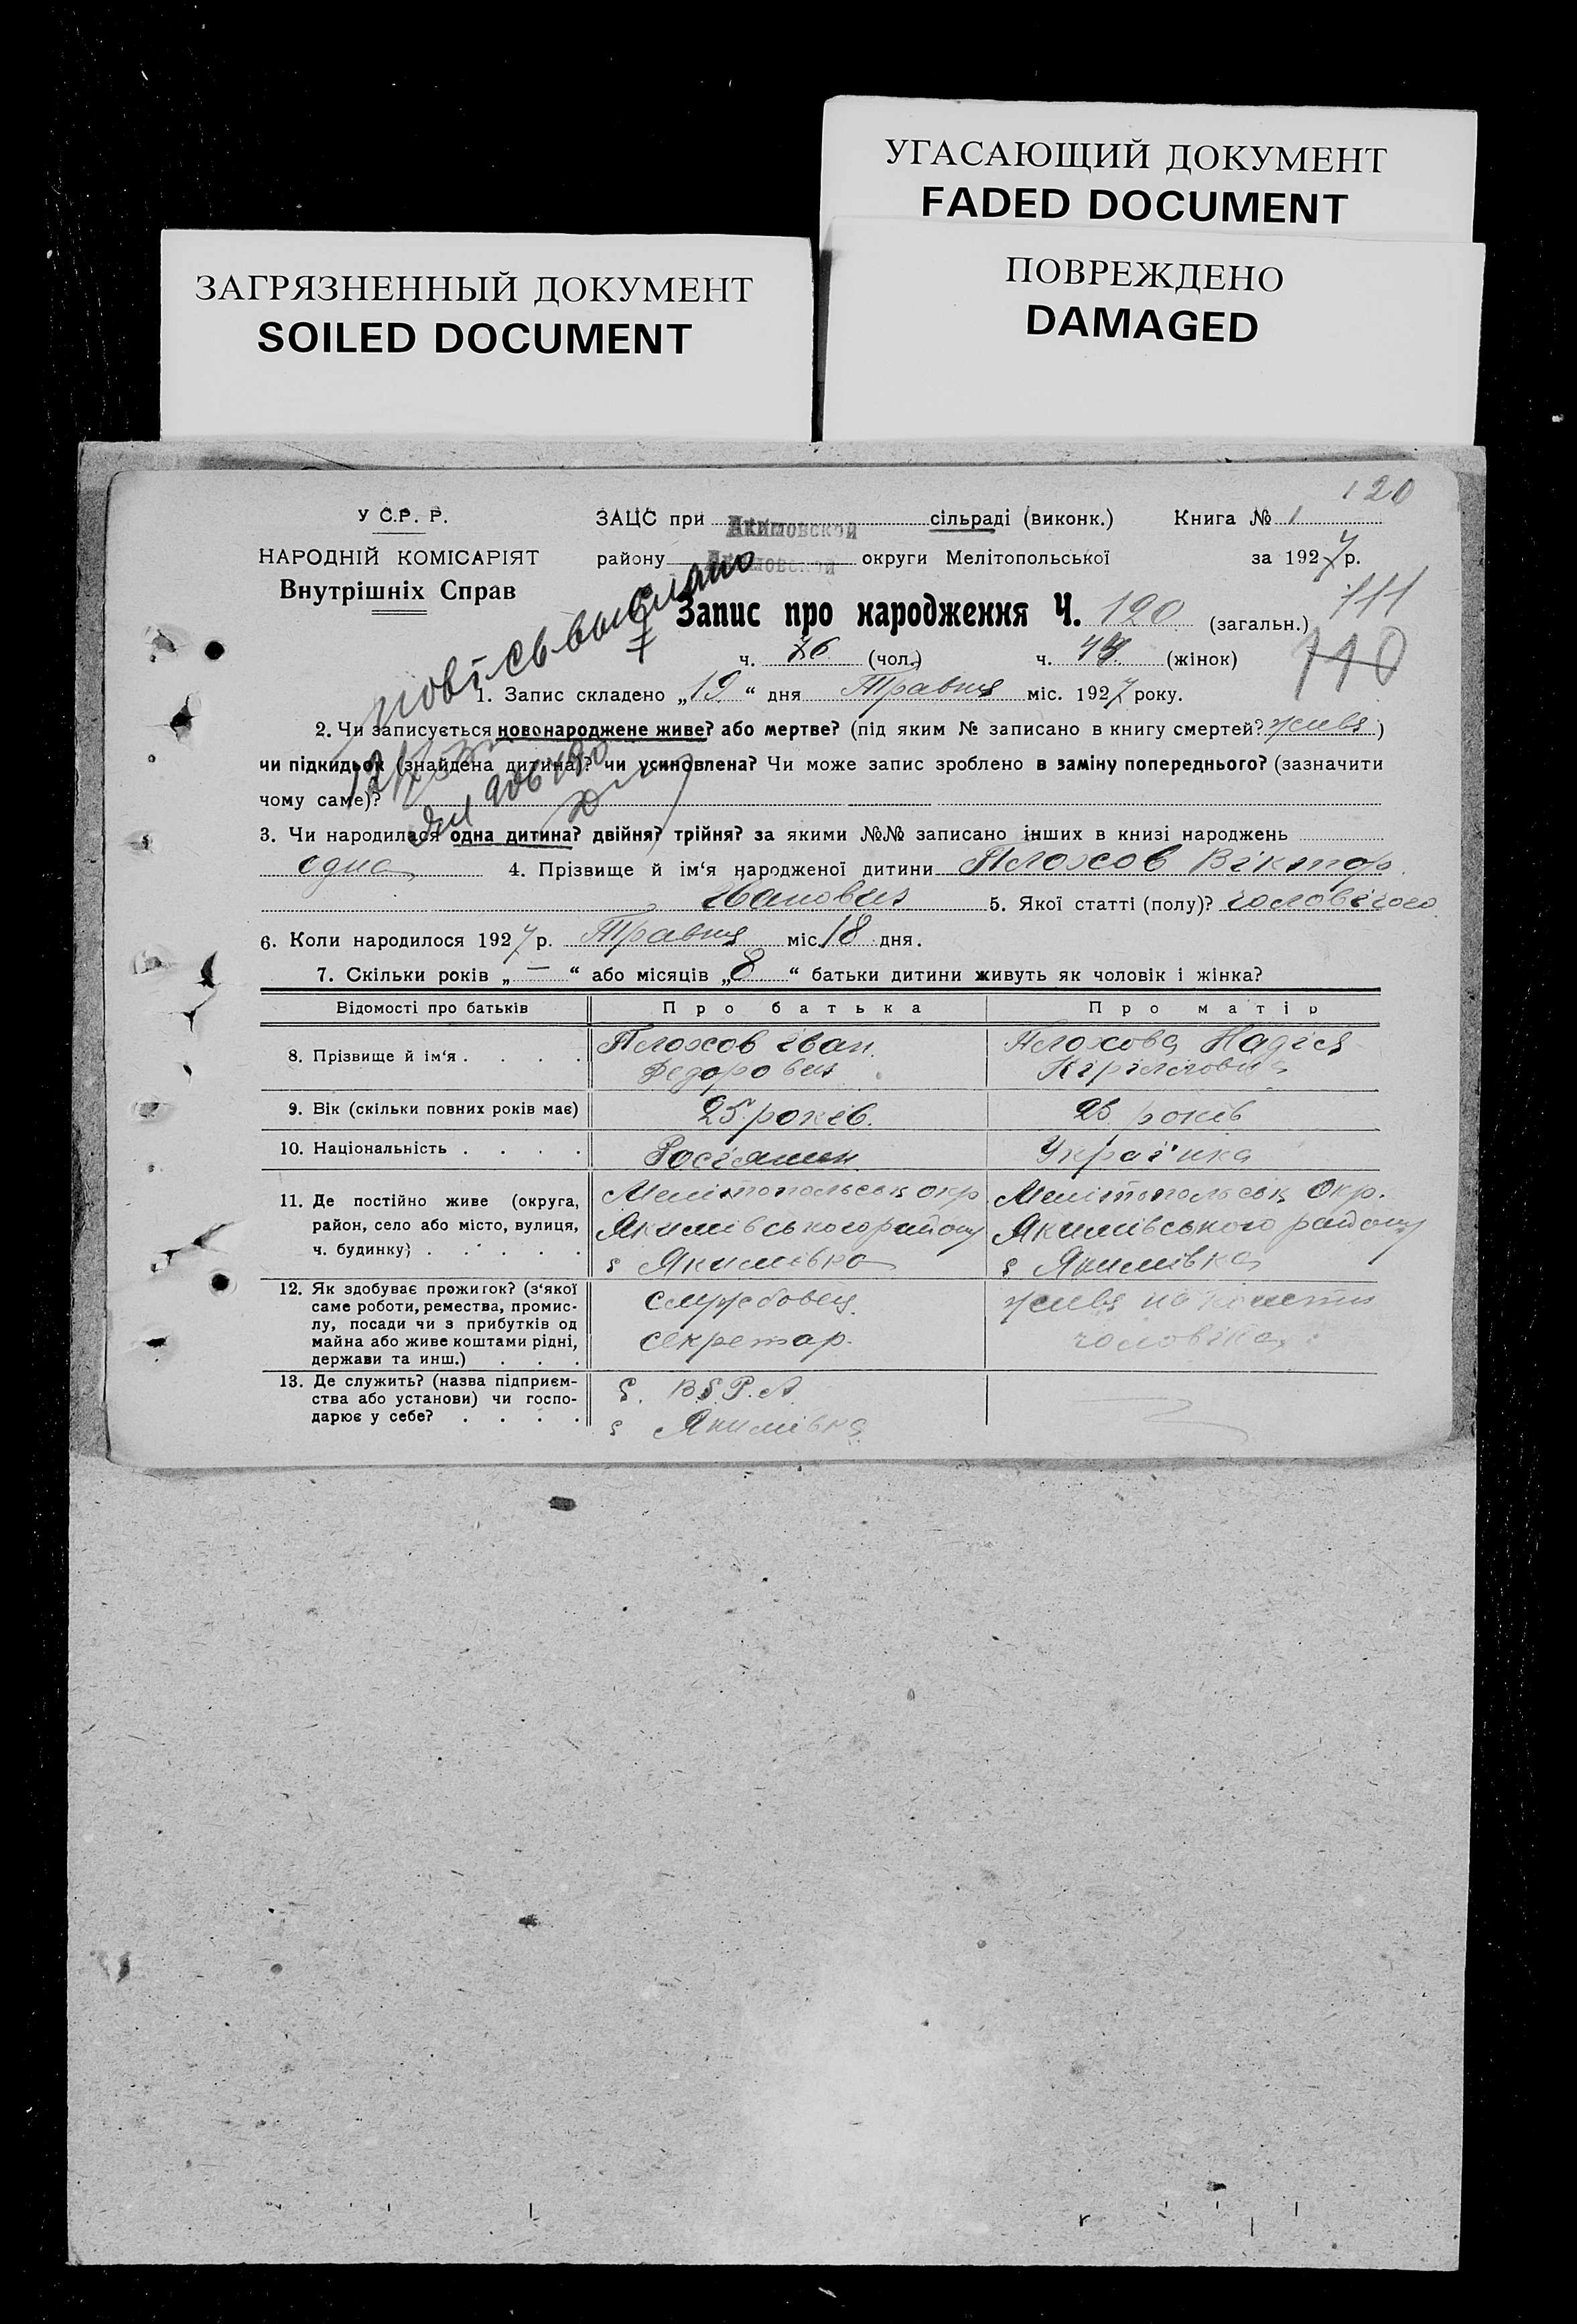 УГАСАЮЩИЙ ДОКУМЕНТ
FADED DOCUMENT
ЗАГРЯЗНЕННЫЙ ДОКУМЕНТ
SOILED DOCUMENT
ПОВРЕЖДЕНО
DAMAGED
120
У С.Р. Р.
НАРОДНІЙ КОМІСАРІЯТ
Внутрішніх Справ
ЗАЦС при Акимовской сільраді (виконк.) Книга № 1
району Акимовской округи Мелітопольської за 1927 р.
Запис про народження Ч. 120 (загальн.) 111
ч. 76 (чол.) ч. 44 (жінок) 110
1. Запис складено „19“ дня Травня міс. 1927 року.
2. Чи записується новонароджене живе? або мертве? (під яким № записано в книгу смертей? живе)
чи підкидьок (знайдена дитина)? чи усиновлена? Чи може запис зроблено в заміну попереднього? (зазначити
чому саме)?
3. Чи народилася одна дитина? двійня? трійня? за якими №№ записано інших в книзі народжень
одна 4. Прізвище й ім‘я народженої дитини Плохов Віктор
Іванович 5. Якої статті (полу)? чоловічого
6. Коли народилося 1927 р. Травня міс. 18 дня.
7. Скільки років „—“ або місяців „8“ батьки дитини живуть як чоловік і жінка?
Відомості про батьків Про батька Про матір
8. Прізвище й ім‘я . . . . Плохов Іван Федорович Плохова Надія Кіріловна
9. Вік (скільки повних років має) 25 років. 25 років
10. Національність . . . . Росіянин Украї'нка
11. Де постійно живе (округа, Мелітопольськ окр. Мелітопольськ Окр.
район, село або місто, вулиця, Якимівського району Якимівського району
ч. будинку) . . . . . . с Якимівка с Якимівка
12. Як здобуває прожиток? (з‘якої службовец живе на кошти
саме роботи, ремества, промис-
лу, посади чи з прибутків од секретар. чоловіка
майна або живе коштами рідні,
держави та инш.) . . .
13. Де служить? (назва підприєм-
ства або установи) чи госпо-
дарює у себе? . . . . с Якимівка